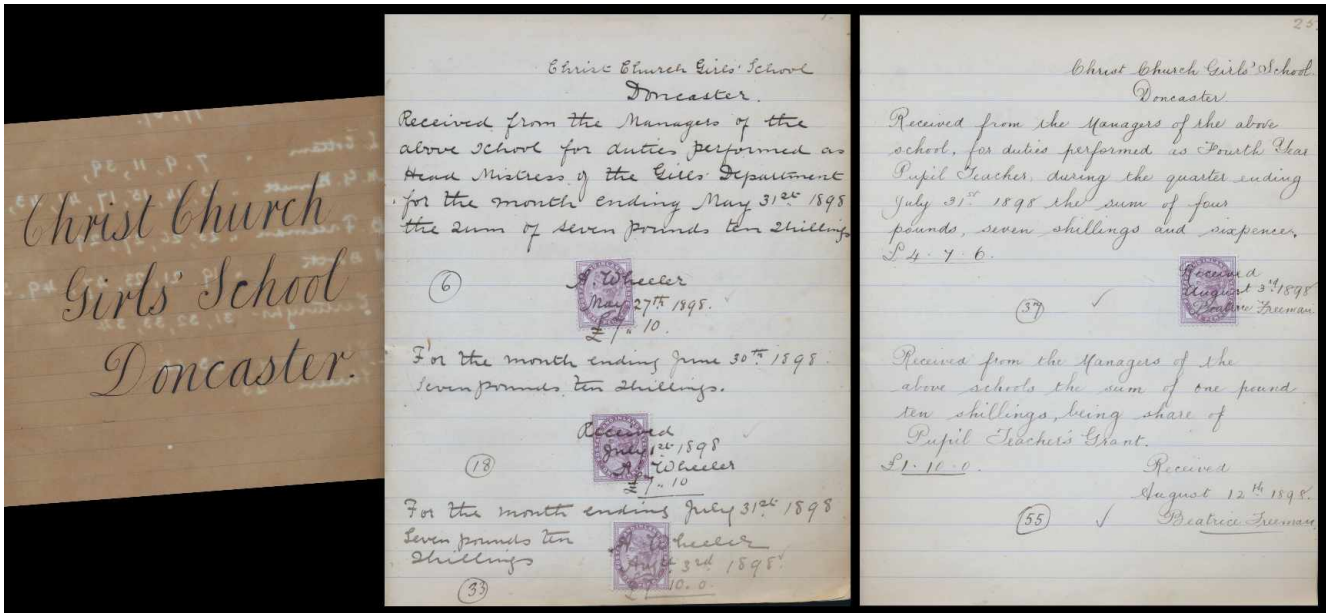 Christ Church
Girls' School
Doncaster.
Christ Church Girls' School
Doncaster.
Received from the Managers of the
above School for duties performed as
Head Mistress of the Girls' Department
for the month ending May 31st 1898
the sum of seven pounds ten shillings
6
A. Wheeler
May 27th 1898.
£7,, 10.
For the month ending June 30th 1898.
Seven pounds ten shillings.
Received
July 1st 1898
18
A. Wheeler
£7,, 10
For the month ending July 31st 1898
Seven pounds ten
shillings
A. Wheeler
Aug. 3rd 1898.
£7.10.0.
33
25
Christ Church Girls' School
Doncaster
Received from the Managers of the above
school, for duties performed as Fourth Year
Pupil Teacher, during the quarter ending
July 31st 1898 the sum of four
pounds, seven shillings and sixpence.
£4.7.6.
Received
August 3rd 1898
37
Beatrice Freeman.
Received from the Managers of the
above schools the sum of one pound
ten shillings, being share of
Pupil Teacher's Grant.
£1.10.0.
Received
August 12th 1898.
55
Beatrice Freeman